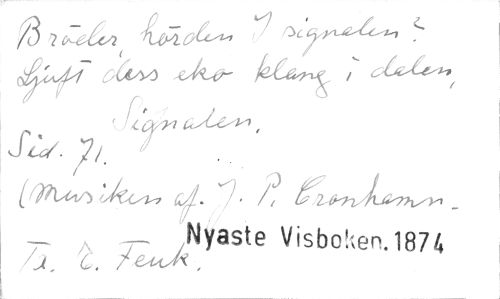 Bröder, hörden I signalen?
Ljuft dess eko klang i dalen,
Signalen.
Sid. 71.
(Musiken af J. P. Cronhamn.
Nyaste Visboken. 1874
Tr. E. Fenk.